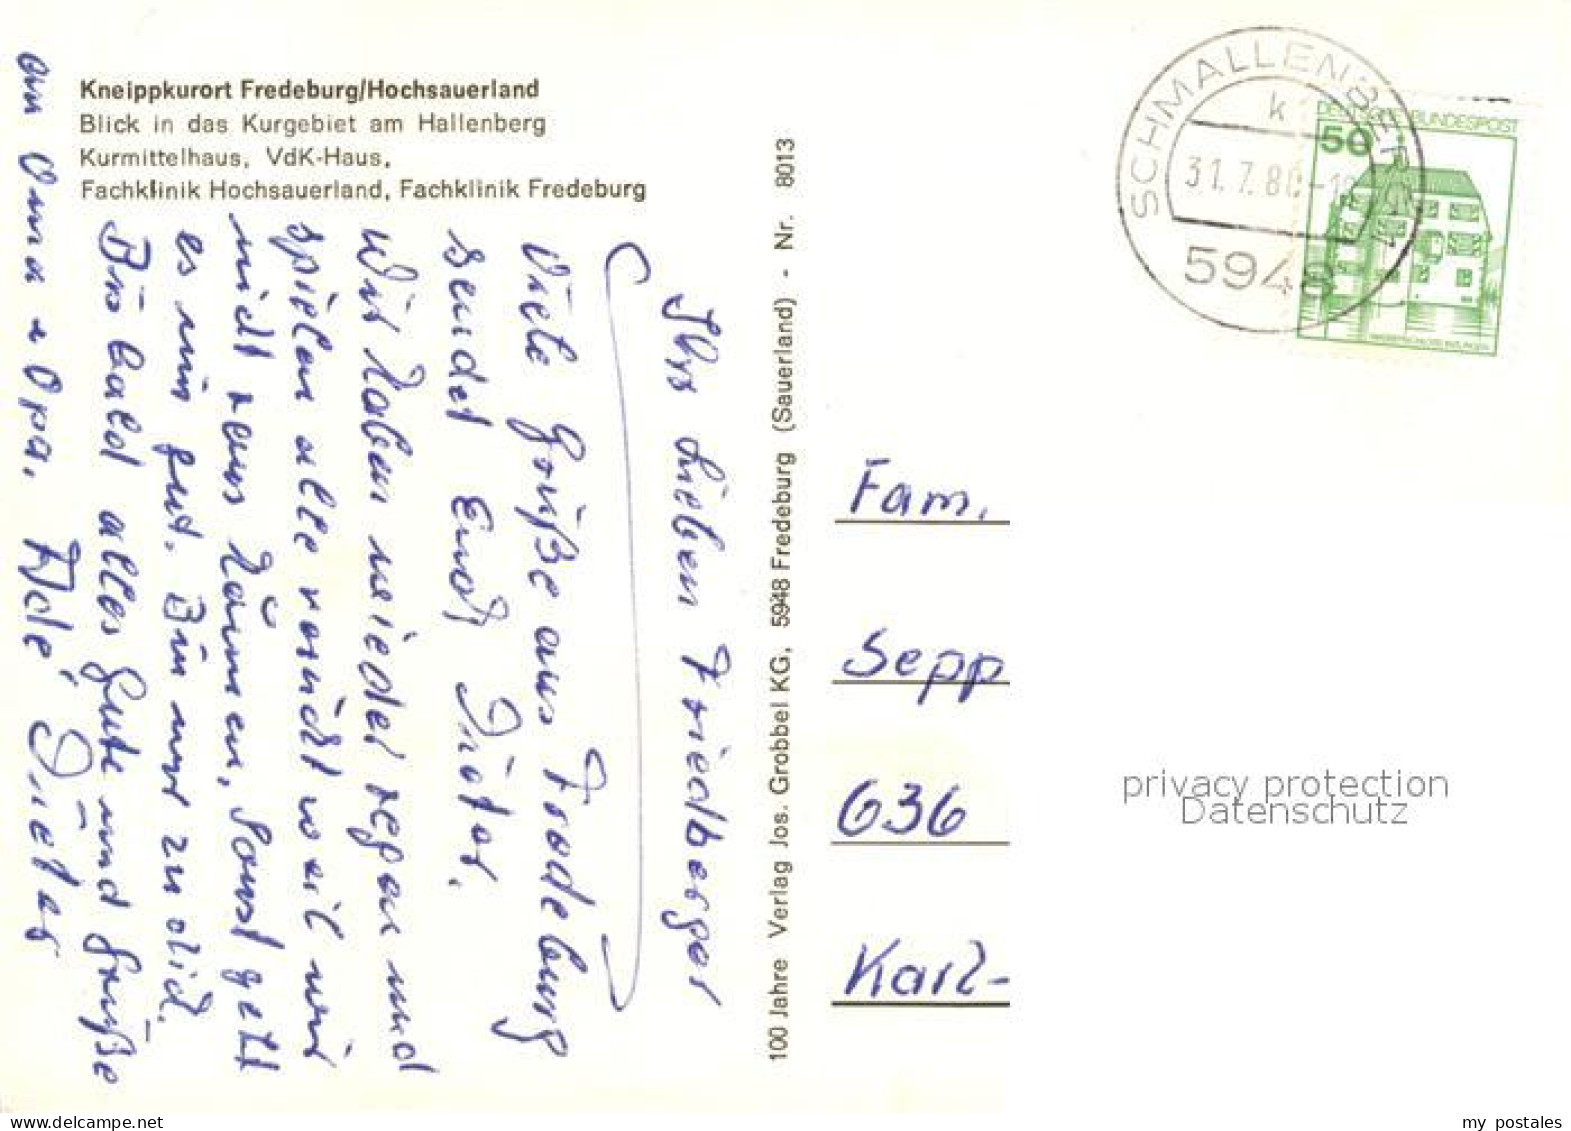 Kneippkurort Fredeburg/Hochsauerland
Blick in das Kurgebiet am Hallenberg
Kurmittelhaus, VdK-Haus,
Fachklinik Hochsauerland, Fachklinik Fredeburg
Ihr Lieben Friedberger
Viele Grüße aus Fredeburg
sendet Euch Dieter.
Wir haben wieder regen und
spielen alle verückt weil wir
nicht raus können, sonst geht
es mir gut. Bin nur zu dick.
Bis bald alles Gute und Grüße
an Oma u Opa. Adé Dieter
100 Jahre Verlag Jos. Grobbel KG, 5948 Fredeburg (Sauerland) - Nr. 8013
SCHMALLENBERG
k
31.7.80
5948
DEUTSCHE BUNDESPOST
50
Fam.
Sepp
636
Karl-
privacy protection
Datenschutz
delcampe.net
my_postales